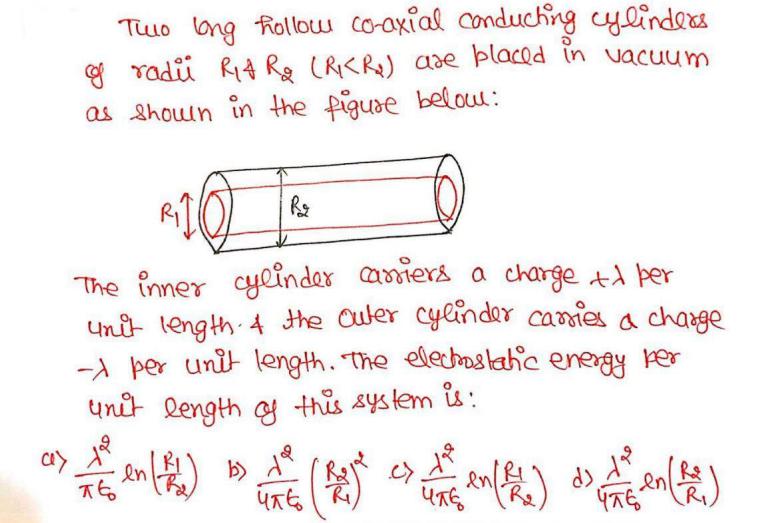 Two long hollow co-axial conducting cylinders
of radii R₁ & R₂ (R₁<R₂) are placed in vacuum
as shown in the figure below:
R₁ R₂
The inner cylinder carriers a charge +λ per
unit length. & the outer cylinder carries a charge
-λ per unit length. The electrostatic energy per
unit length of this system is:
a) λ²/πε₀ ln(R₁/R₂) b) λ²/4πε₀ (R₂/R₁)² c) λ²/4πε₀ ln(R₁/R₂) d) λ²/4πε₀ ln(R₂/R₁)